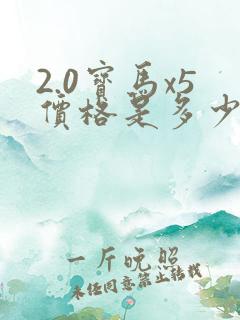 2.0寶馬x5
價格是多少
一斤晚照
未经同意禁止转载